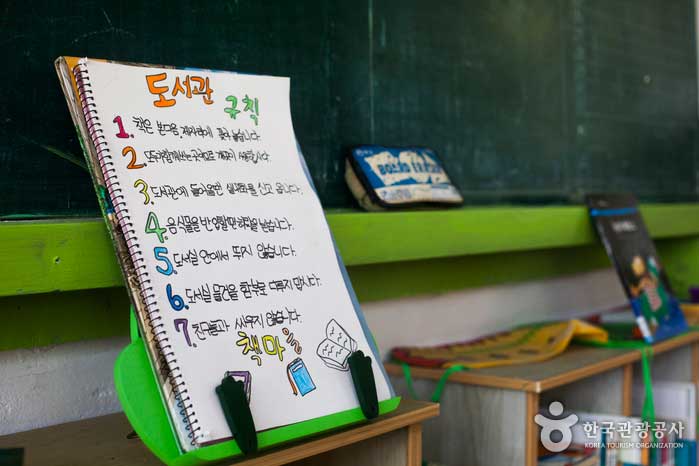 도서관
규칙
1. 책은 본 다음, 제자리에 꽂아 놓습니다.
2.
3. 도서관에 들어올땐 실내화를 신고 옵니다.
4. 음식물을 반입할땐 허락을 받습니다.
5. 도서실 안에서 뛰지 않습니다.
6. 도서실 물건을 함부로 다루지 맙시다.
7. 친구들과 싸우지 않습니다.
책마을
BOARD
한국관광공사
KOREA TOURISM ORGANIZATION